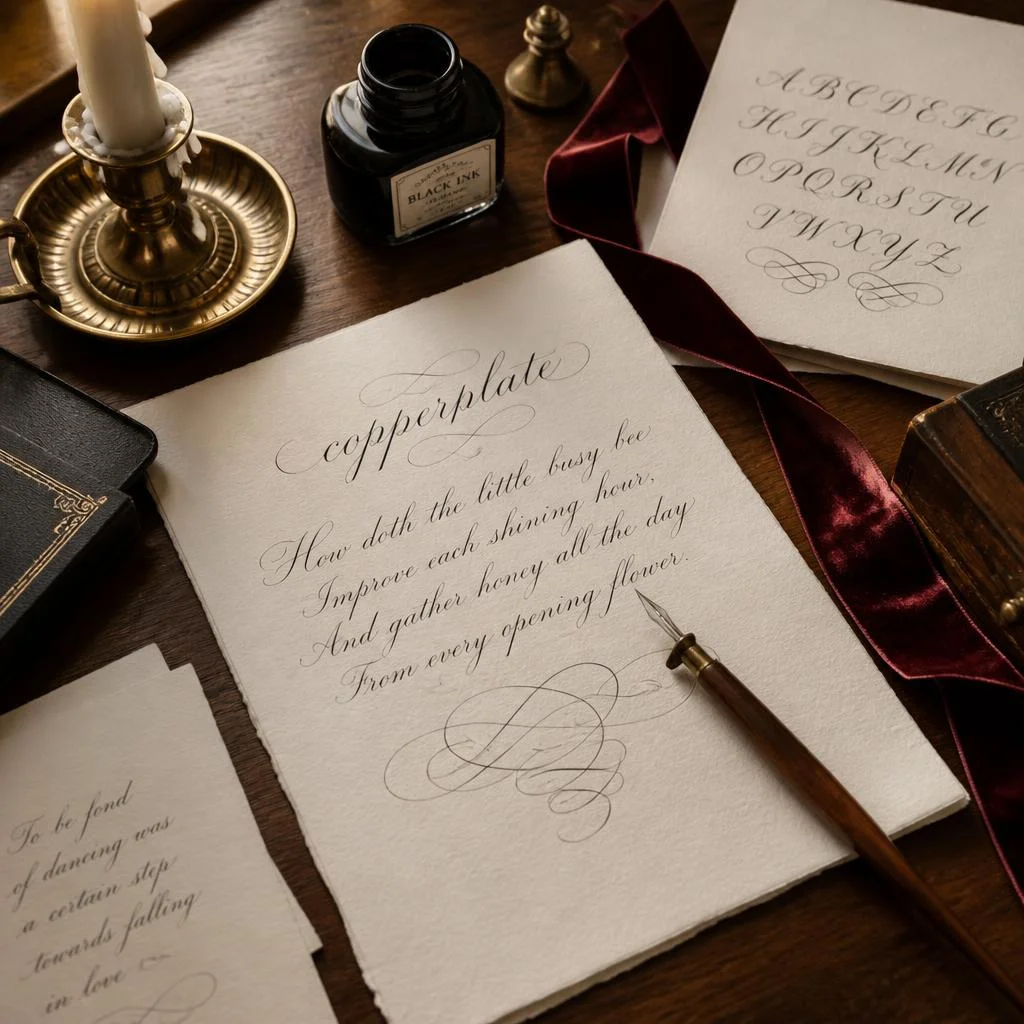 copperplate
How doth the little busy bee
Improve each shining hour,
And gather honey all the day
From every opening flower.
BLACK INK
A B C D E F G
H I J K L M N
O P Q R S T U
V W X Y Z
To be fond
of dancing was
a certain step
towards falling
in love